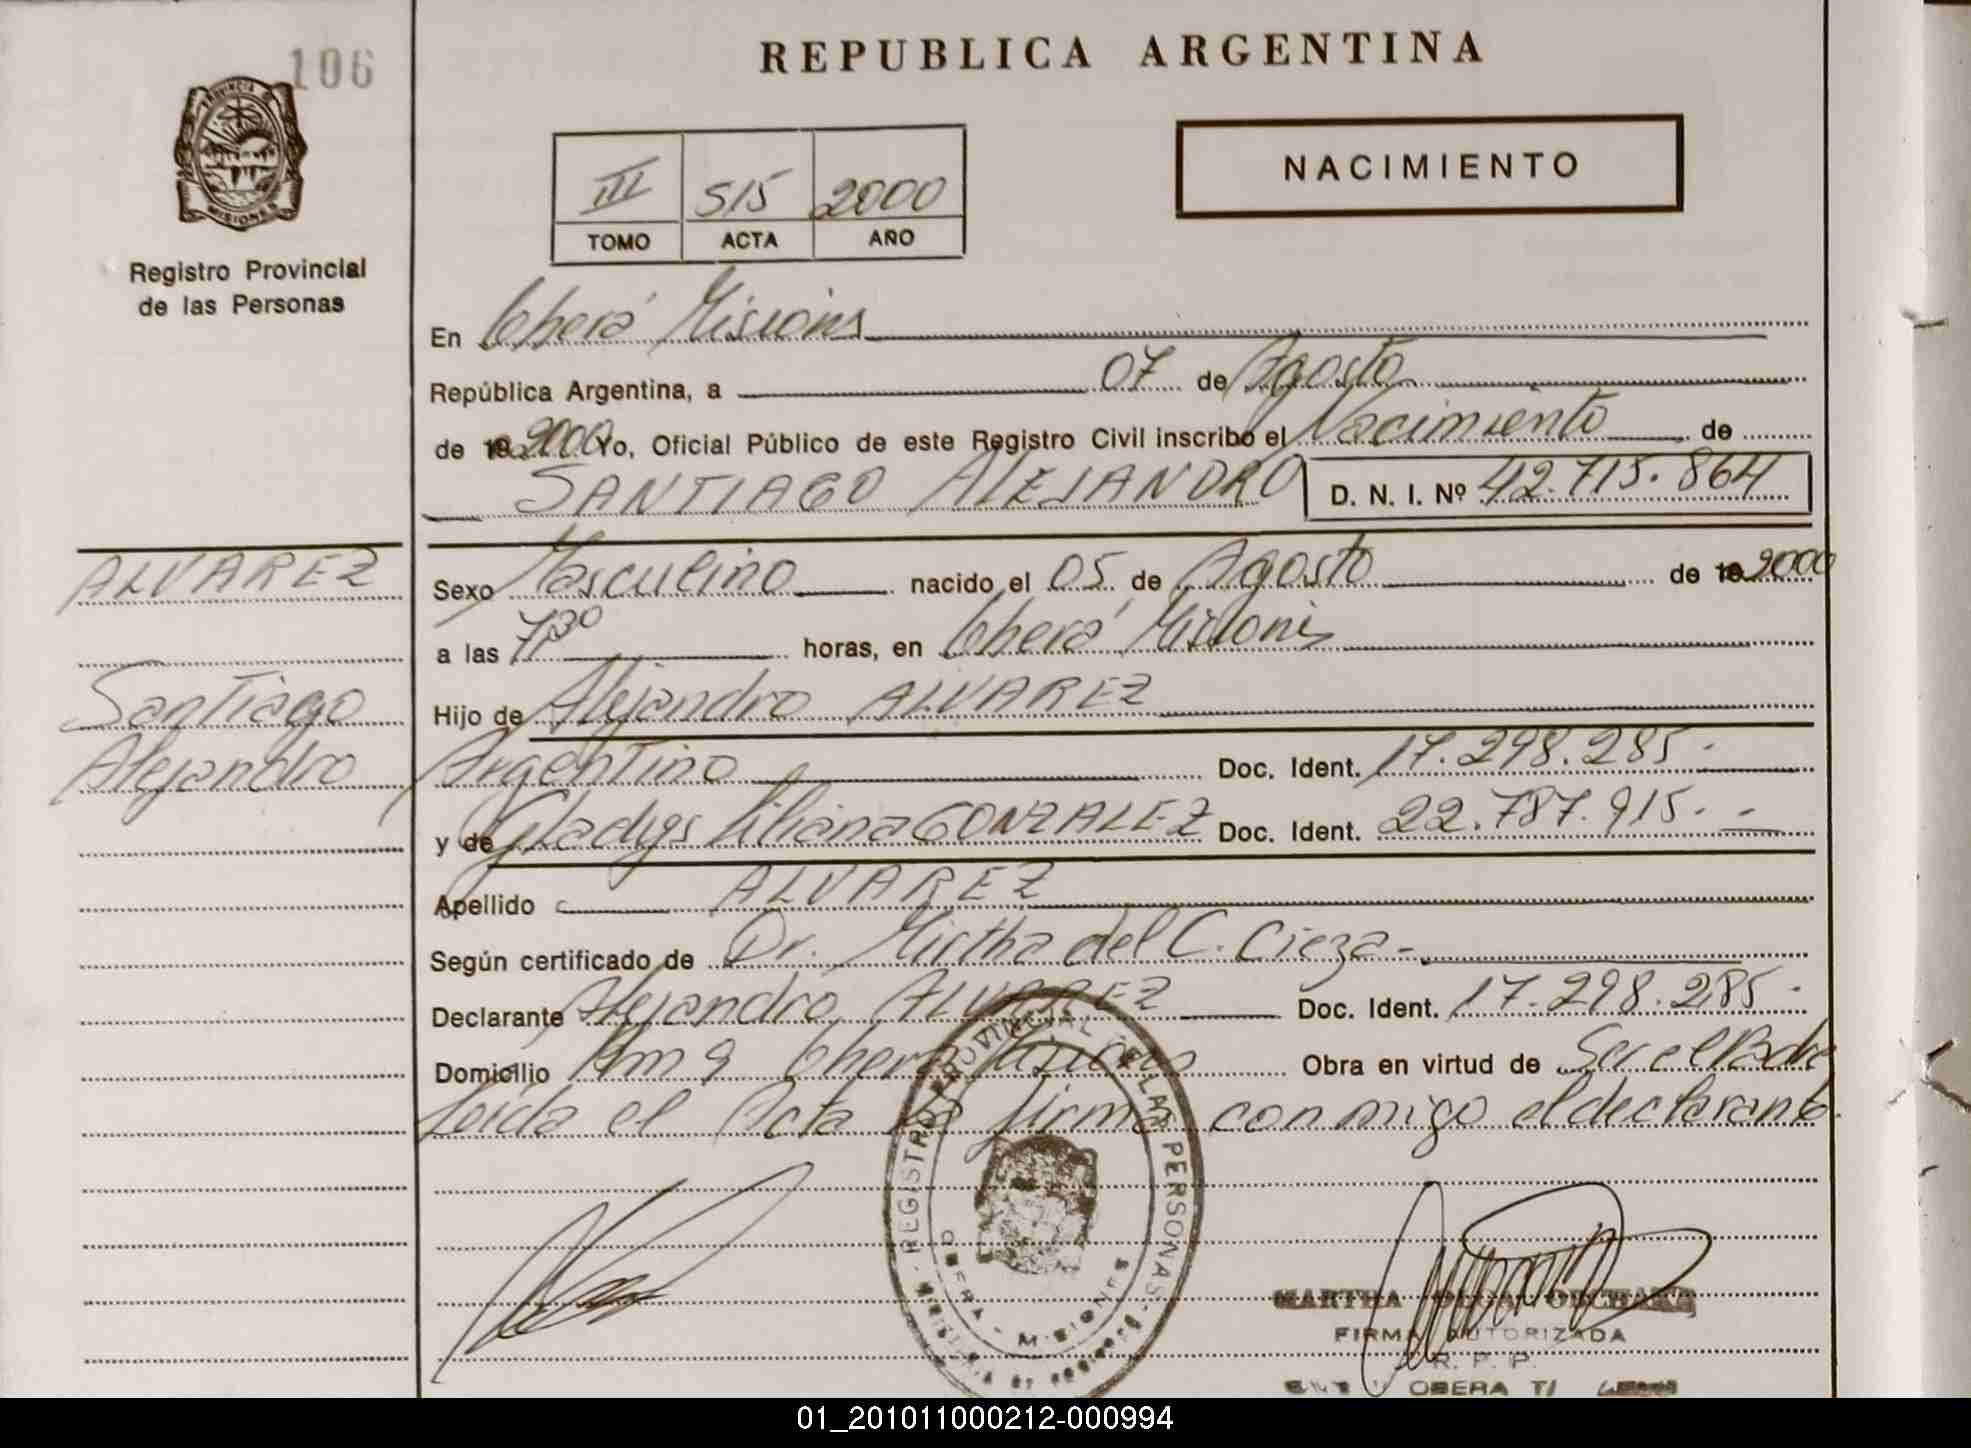 106
REPUBLICA ARGENTINA
PROVINCIA DE
MISIONES
Registro Provincial
de las Personas
III 515 2000
TOMO ACTA AÑO
NACIMIENTO
En Oberá Misiones
República Argentina, a 07 de Agosto
de 19 2000 Yo, Oficial Público de este Registro Civil inscribo el Nacimiento de
SANTIAGO ALEJANDRO D. N. I. Nº 42.715.864
ALVAREZ
Santiago
Alejandro
Sexo Masculino nacido el 05 de Agosto de 19 2000
a las 7,30 horas, en Oberá Misiones
Hijo de Alejandro ALVAREZ
Argentino Doc. Ident. 17.298.285.
y de Gladys Liliana GONZALEZ Doc. Ident. 22.787.915.-
Apellido ALVAREZ
Según certificado de Dr. Mirtha del C. Cieza-
Declarante Alejandro ALVAREZ Doc. Ident. 17.298.285.
Domicilio Km 9 Oberá Misiones Obra en virtud de Ser el Padre
Leída el Acta la firma conmigo el declarante.
REGISTRO PROVINCIAL DE LAS PERSONAS
OBERA - MISIONES
MARTHA OLGA
FIRMA AUTORIZADA
R. P. P.
OBERA
01_201011000212-000994